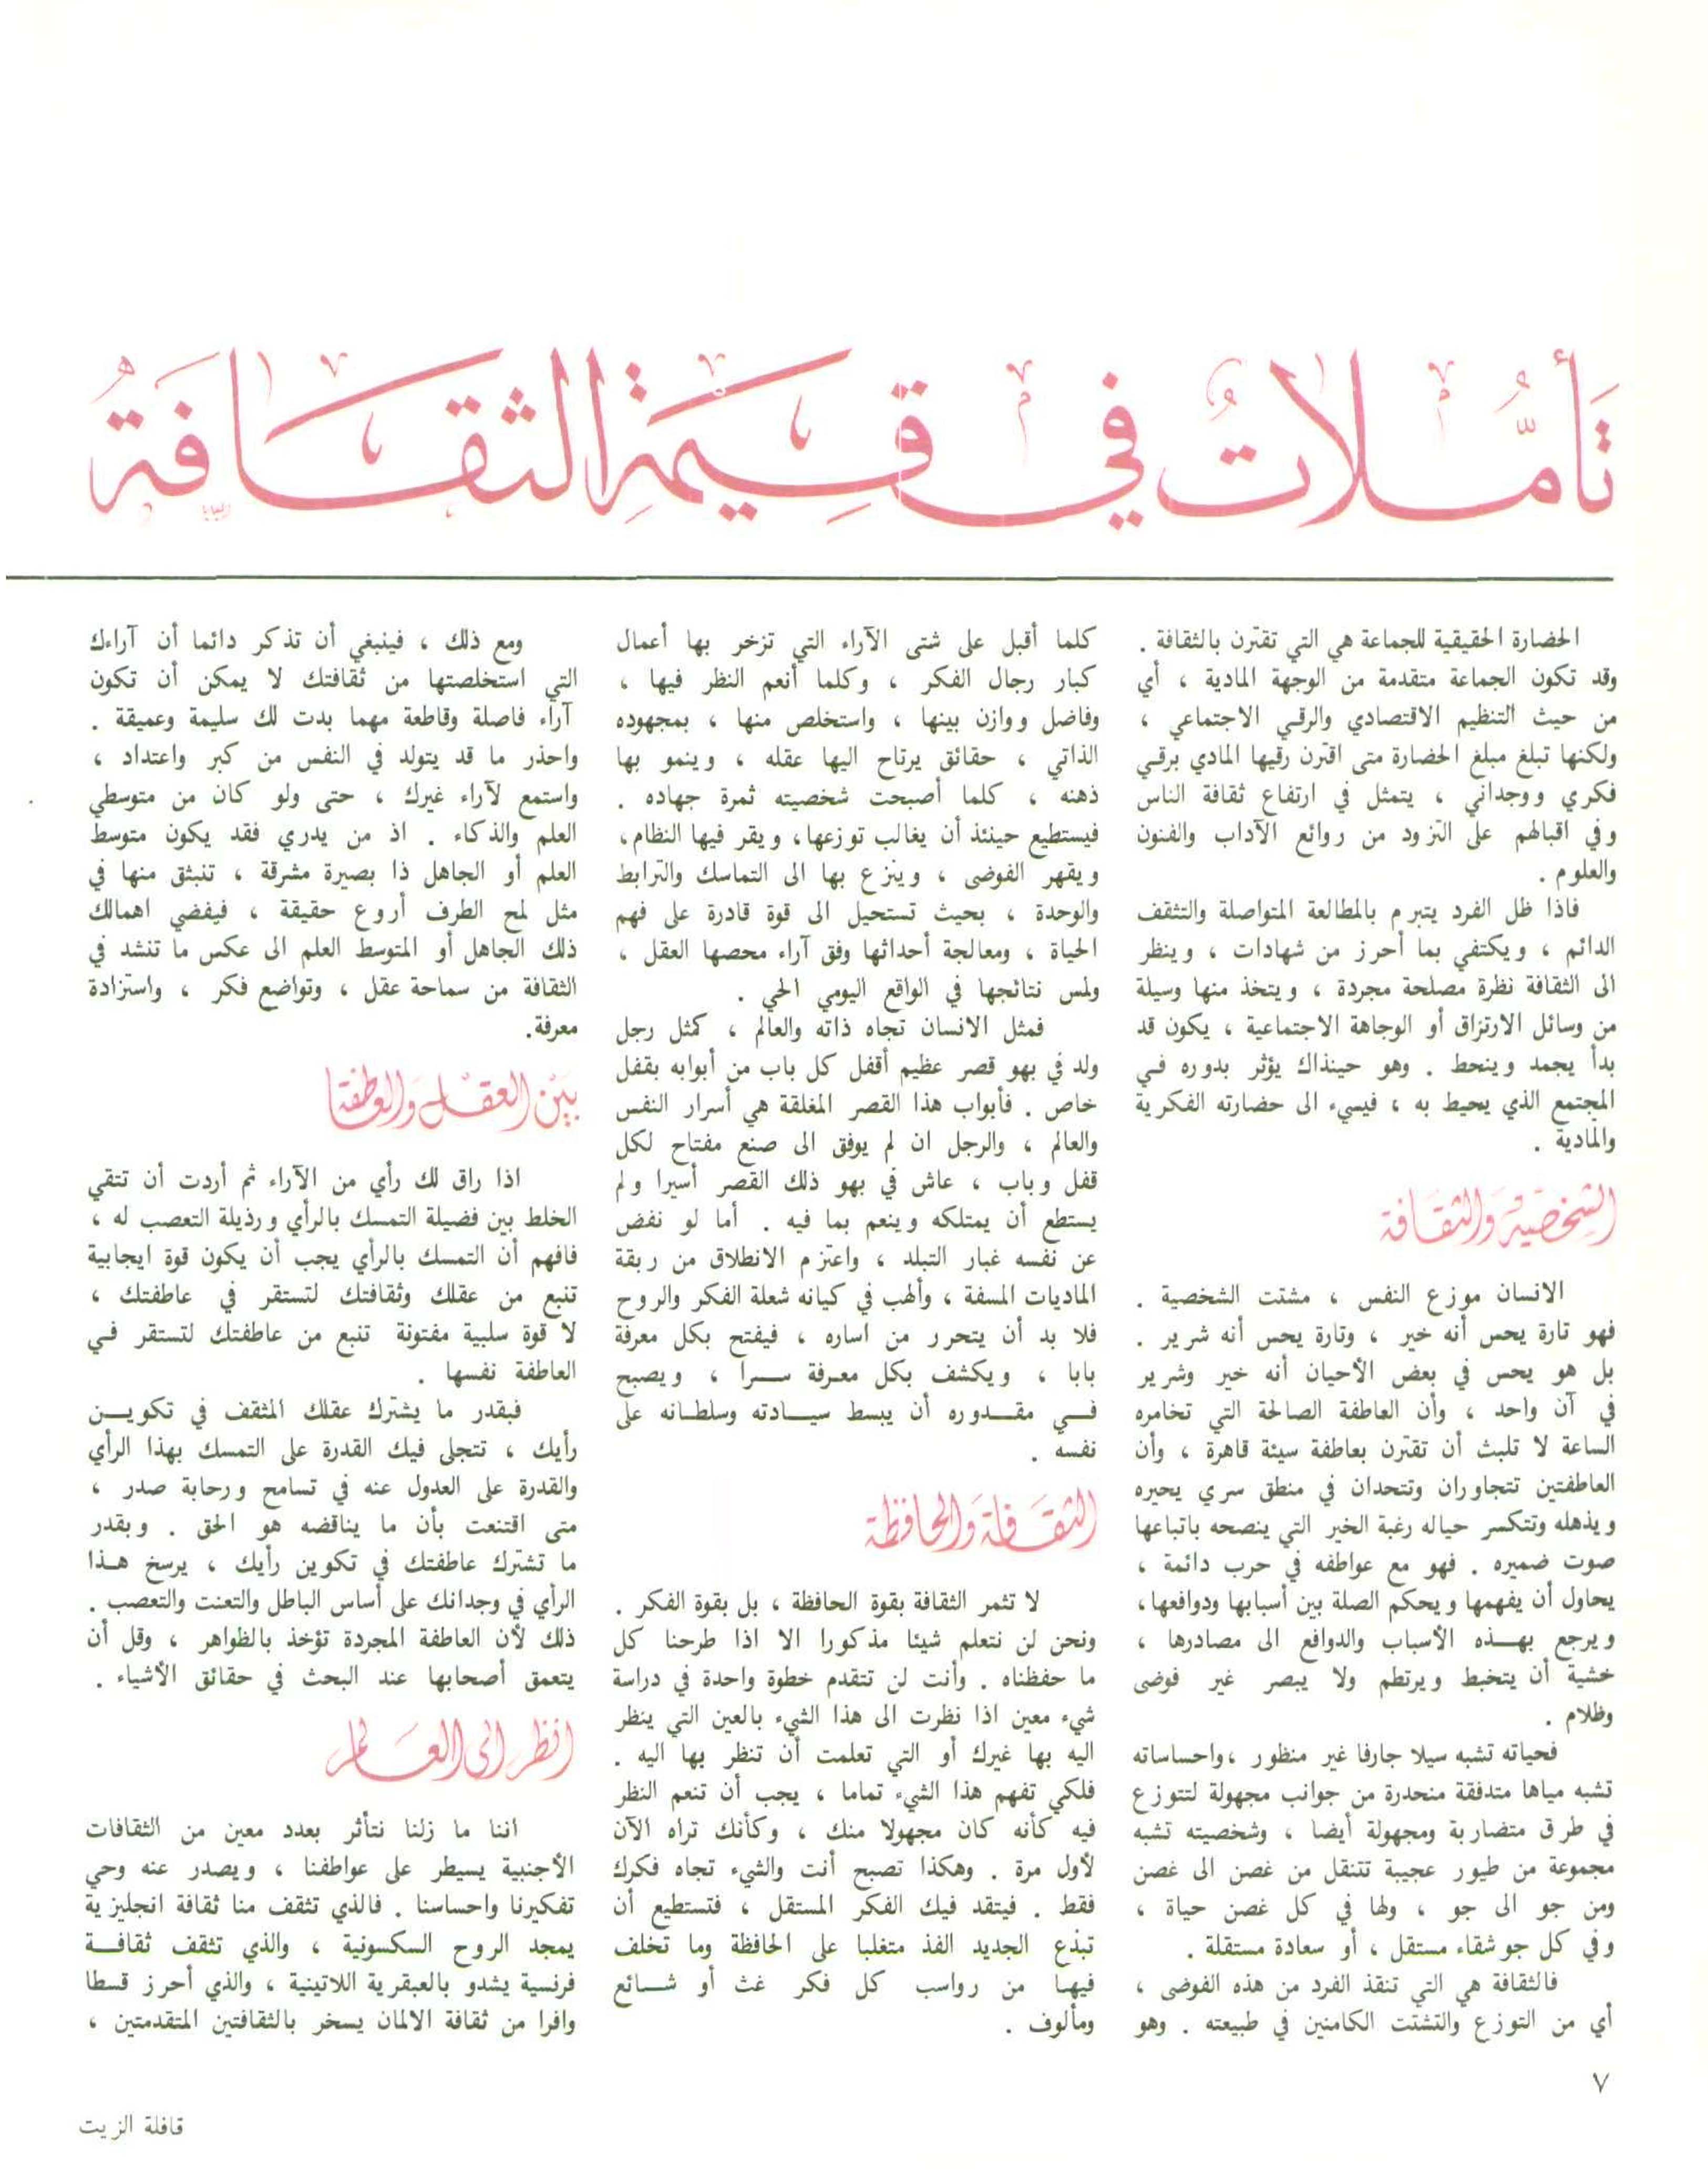 تأملات في قيمة الثقافة
الحضارة الحقيقية للجماعة هي التي تقترن بالثقافة .
وقد تكون الجماعة متقدمة من الوجهة المادية ، أي
من حيث التنظيم الاقتصادي والرقي الاجتماعي ،
ولكنها تبلغ مبلغ الحضارة متى اقترن رقيها المادي برقي
فكري ووجداني ، يتمثل في ارتفاع ثقافة الناس
وفي اقبالهم على التزود من روائع الآداب والفنون
والعلوم .
فاذا ظل الفرد يتبرم بالمطالعة المتواصلة والتثقف
الدائم ، ويكتفي بما أحرز من شهادات ، وينظر
الى الثقافة نظرة مصلحة مجردة ، ويتخذ منها وسيلة
من وسائل الارتزاق أو الوجاهة الاجتماعية ، يكون قد
بدأ يجمد وينحط . وهو حينذاك يؤثر بدوره في
المجتمع الذي يحيط به ، فيسيء الى حضارته الفكرية
والمادية .
الشخصية والثقافة
الانسان موزع النفس ، مشتت الشخصية .
فهو تارة يحس أنه خير ، وتارة يحس أنه شرير .
بل هو يحس في بعض الأحيان أنه خير وشرير
في آن واحد ، وأن العاطفة الصالحة التي تخامره
الساعة لا تلبث أن تقترن بعاطفة سيئة قاهرة ، وأن
العاطفتين تتجاوران وتتحدان في منطق سري يحيره
ويذهله وتتكسر حياله رغبة الخير التي ينصحه باتباعها
صوت ضميره . فهو مع عواطفه في حرب دائمة ،
يحاول أن يفهمها ويحكم الصلة بين أسبابها ودوافعها ،
ويرجع بهذه الأسباب والدوافع الى مصادرها ،
خشية أن يتخبط ويرتطم ولا يبصر غير فوضى
وظلام .
فحياته تشبه سيلا جارفا غير منظور ، واحساساته
تشبه مياها متدفقة منحدرة من جوانب مجهولة لتتوزع
في طرق متضاربة ومجهولة أيضا ، وشخصيته تشبه
مجموعة من طيور عجيبة تتنقل من غصن الى غصن
ومن جو الى جو ، ولها في كل غصن حياة ،
وفي كل جو شقاء مستقل ، أو سعادة مستقلة .
فالثقافة هي التي تنقذ الفرد من هذه الفوضى ،
أي من التوزع والتشتت الكامنين في طبيعته . وهو
كلما أقبل على شتى الآراء التي تزخر بها أعمال
كبار رجال الفكر ، وكلما أنعم النظر فيها ،
وفاضل ووازن بينها ، واستخلص منها ، بمجهوده
الذاتي ، حقائق يرتاح اليها عقله ، وينمو بها
ذهنه ، كلما أصبحت شخصيته ثمرة جهاده .
فيستطيع حينئذ أن يغالب توزعها ، ويقر فيها النظام ،
ويقهر الفوضى ، وينزع بها الى التماسك والترابط
والوحدة ، بحيث تستحيل الى قوة قادرة على فهم
الحياة ، ومعالجة أحداثها وفق آراء محصها العقل ،
ولمس نتائجها في الواقع اليومي الحي .
فمثل الانسان تجاه ذاته والعالم ، كمثل رجل
ولد في بهو قصر عظيم أقفل كل باب من أبوابه بقفل
خاص . فأبواب هذا القصر المغلقة هي أسرار النفس
والعالم ، والرجل ان لم يوفق الى صنع مفتاح لكل
قفل وباب ، عاش في بهو ذلك القصر أسيرا ولم
يستطع أن يمتلكه وينعم بما فيه . أما لو نفض
عن نفسه غبار التبلد ، واعتزم الانطلاق من ربقة
الماديات المسفة ، وألهب في كيانه شعلة الفكر والروح
فلا بد أن يتحرر من اساره ، فيفتح بكل معرفة
بابا ، ويكشف بكل معرفة سرا ، ويصبح
في مقدوره أن يبسط سيادته وسلطانه على
نفسه .
الثقافة والحافظة
لا تثمر الثقافة بقوة الحافظة ، بل بقوة الفكر .
ونحن لن نتعلم شيئا مذكورا الا اذا طرحنا كل
ما حفظناه . وأنت لن تتقدم خطوة واحدة في دراسة
شيء معين اذا نظرت الى هذا الشيء بالعين التي ينظر
اليه بها غيرك أو التي تعلمت أن تنظر بها اليه .
فلكي تفهم هذا الشيء تماما ، يجب أن تنعم النظر
فيه كأنه كان مجهولا منك ، وكأنك تراه الآن
لأول مرة . وهكذا تصبح أنت والشيء تجاه فكرك
فقط . فيتقد فيك الفكر المستقل ، فتستطيع أن
تبدع الجديد الفذ متغلبا على الحافظة وما تخلف
فيها من رواسب كل فكر غث أو شائع
ومألوف .
ومع ذلك ، فينبغي أن تذكر دائما أن آراءك
التي استخلصتها من ثقافتك لا يمكن أن تكون
آراء فاصلة وقاطعة مهما بدت لك سليمة وعميقة .
واحذر ما قد يتولد في النفس من كبر واعتداد ،
واستمع لآراء غيرك ، حتى ولو كان من متوسطي
العلم والذكاء . اذ من يدري فقد يكون متوسط
العلم أو الجاهل ذا بصيرة مشرقة ، تنبثق منها في
مثل لمح الطرف أروع حقيقة ، فيفضي اهمالك
ذلك الجاهل أو المتوسط العلم الى عكس ما تنشد في
الثقافة من سماحة عقل ، وتواضع فكر ، واستزادة
معرفة.
بين العقل والعاطفة
اذا راق لك رأي من الآراء ثم أردت أن تتقي
الخلط بين فضيلة التمسك بالرأي ورذيلة التعصب له ،
فافهم أن التمسك بالرأي يجب أن يكون قوة ايجابية
تنبع من عقلك وثقافتك لتستقر في عاطفتك ،
لا قوة سلبية مفتونة تنبع من عاطفتك لتستقر في
العاطفة نفسها .
فبقدر ما يشترك عقلك المثقف في تكوين
رأيك ، تتجلى فيك القدرة على التمسك بهذا الرأي
والقدرة على العدول عنه في تسامح ورحابة صدر ،
متى اقتنعت بأن ما يناقضه هو الحق . وبقدر
ما تشترك عاطفتك في تكوين رأيك ، يرسخ هذا
الرأي في وجدانك على أساس الباطل والتعنت والتعصب .
ذلك لأن العاطفة المجردة تؤخذ بالظواهر ، وقل أن
يتعمق أصحابها عند البحث في حقائق الأشياء .
انظر الى العالم
اننا ما زلنا نتأثر بعدد معين من الثقافات
الأجنبية يسيطر على عواطفنا ، ويصدر عنه وحي
تفكيرنا واحساسنا . فالذي تثقف منا ثقافة انجليزية
يمجد الروح السكسونية ، والذي تثقف ثقافة
فرنسية يشدو بالعبقرية اللاتينية ، والذي أحرز قسطا
وافرا من ثقافة الالمان يسخر بالثقافتين المتقدمتين ،
٧
قافلة الزيت